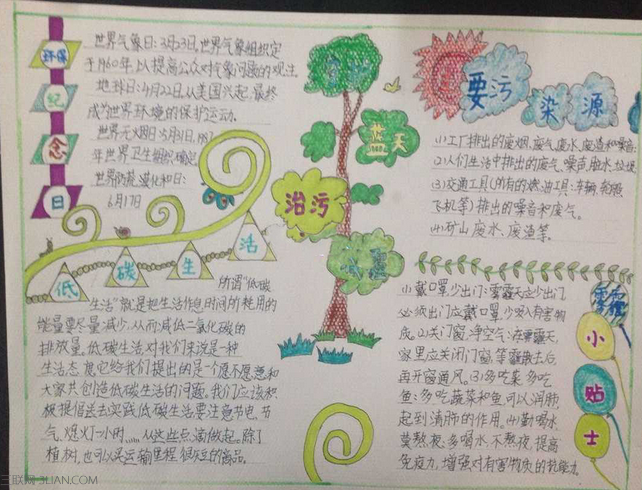 环保
纪
念
日
世界气象日:3月23日,世界气象组织定
于1960年,以提高公众对气象问题的观注。
地球日:4月22日,从美国兴起,最终
成为世界环境的保护运动。
世界无烟日:5月31日,1987
年世界卫生组织确定
世界防治荒漠化和日:
6月17日
低
碳
生
活
所谓"低碳
生活"就是把生活作息时间所耗用的
能量要尽量减少,从而减低二氧化碳的
排放量。低碳生活对我们来说是一种
生活态度,它给我们提出的是个愿不愿意和
大家共创造低碳生活的问题。我们应该积
极提倡去实践低碳生活要注意节电、节
气、熄灯一小时……从这些点滴做起。除了
植树,也可以买运输里程很短的商品。
蓝天
治污
要污
染
源
(1)工厂排出的废烟、废气、废水、废渣和噪音;
(2)人们生活中排出的废气、噪声、脏水、垃圾
(3)交通工具(所有的燃油工具:车辆、轮船
飞机等)排出的噪音和废气。
(4)矿山废水、废渣等。
小
贴
士
(1)戴口罩,少出门:雾霾天少出门
必须出门应戴口罩,少吸入有害物
质。(2)关门窗,净空气:在雾霾天,
家里应关闭门窗,等雾散去后
再开窗通风。(3)多吃菜,多吃
鱼:多吃蔬菜和鱼可以润肺,
起到清肺的作用。(4)勤喝水
莫熬夜:多喝水,不熬夜,提高
免疫力,增强对有害物质的抗能力。
三联网 3LIAN.COM